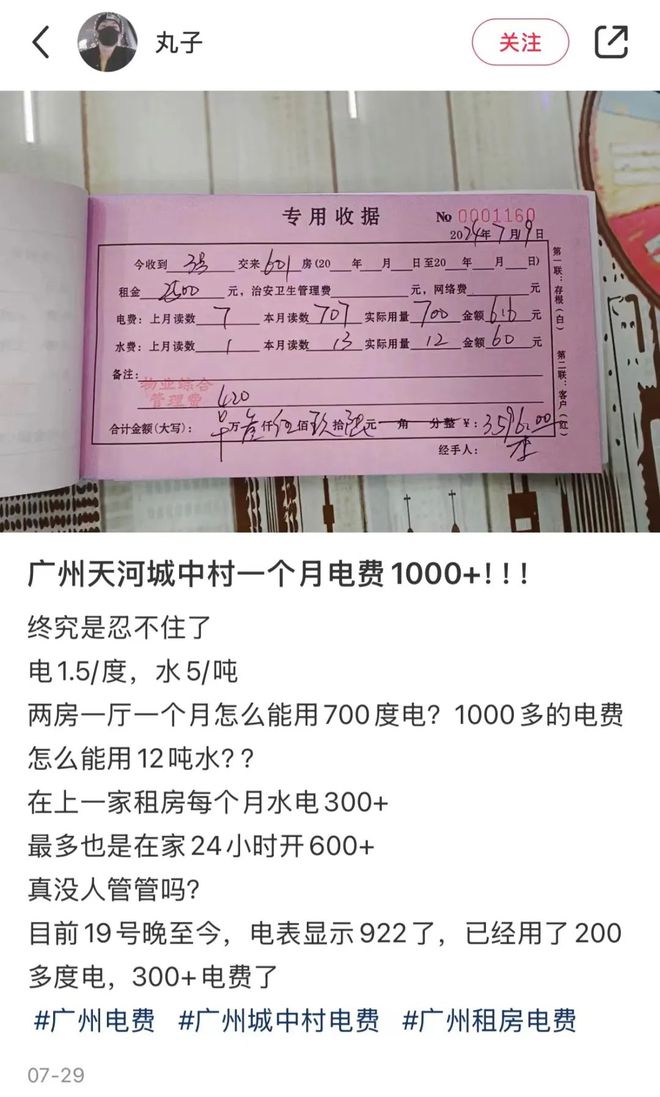 丸子
关注
专用收据
No 0001160
2024年7月19日
今收到 交来601房(20 年 月 日至20 年 月 日)
租金 2500 元，治安卫生管理费 元，网络费 元
电费：上月读数 7 本月读数 707 实际用量 700 金额 616 元
水费：上月读数 1 本月读数 13 实际用量 12 金额 60 元
备注：
物业综合
管理费 420
合计金额(大写)： 万 仟 佰玖拾 元 角 分整 ¥：3596.00
经手人：
第一联：存根(白) 第二联：客户(红)
广州天河城中村一个月电费1000+！！！
终究是忍不住了
电1.5/度，水5/吨
两房一厅一个月怎么能用700度电？1000多的电费
怎么能用12吨水？？
在上一家租房每个月水电300+
最多也是在家24小时开600+
真没人管管吗？
目前19号晚至今，电表显示922了，已经用了200
多度电，300+电费了
#广州电费 #广州城中村电费 #广州租房电费
07-29